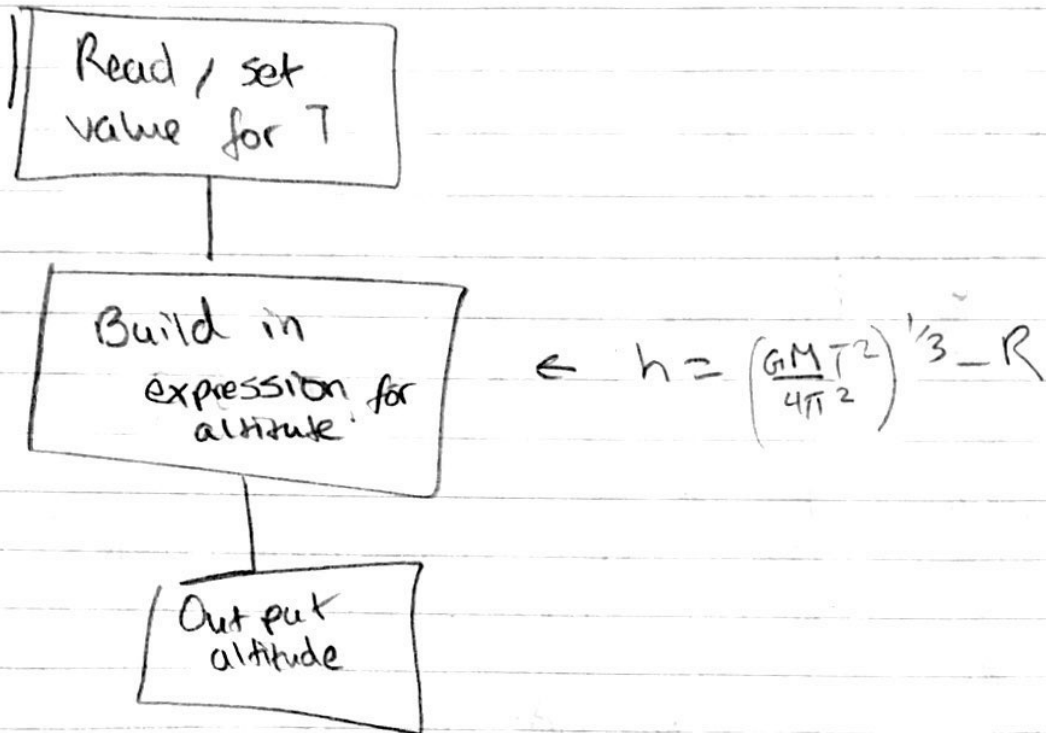 Read / set
value for T
Build in
expression for
altitude
← h = (GMT²/4π²)^1/3 - R
Output
altitude